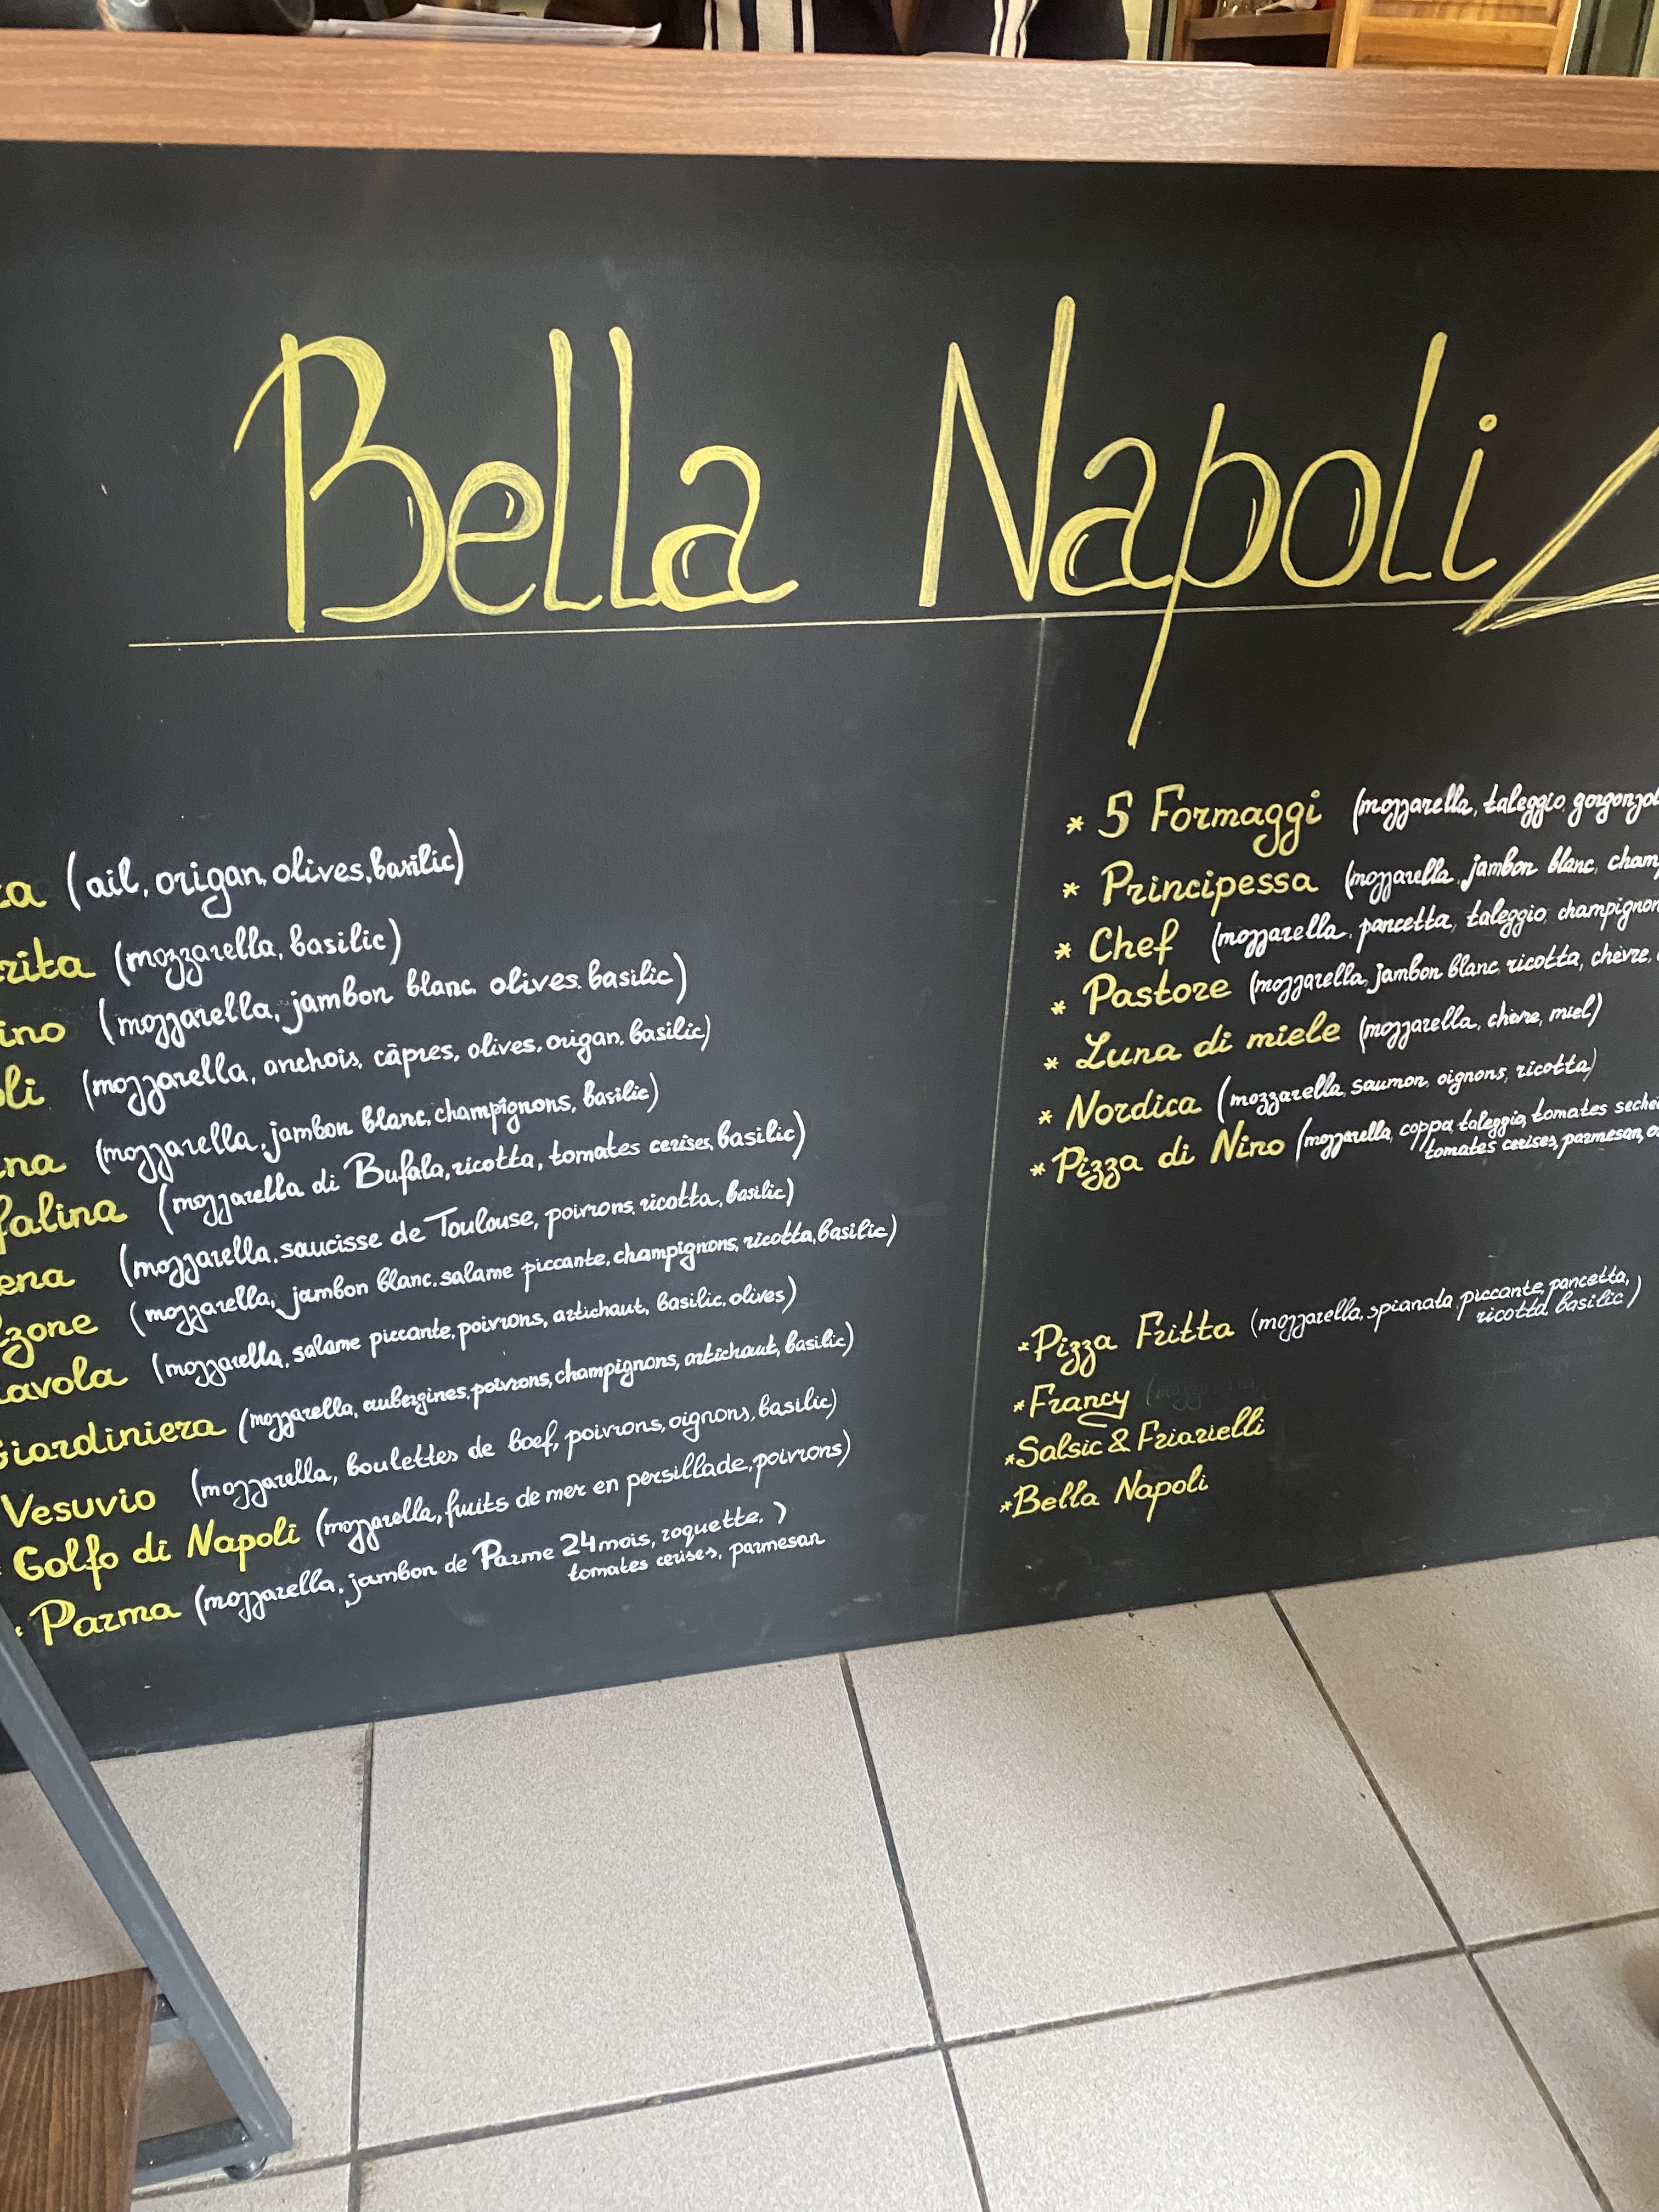 Bella Napoli
za (ail, origan, olives, basilic)
rita (mozzarella, basilic)
ino (mozzarella, jambon blanc, olives, basilic)
oli (mozzarella, anchois, câpres, olives, origan, basilic)
na (mozzarella, jambon blanc, champignons, basilic)
falina (mozzarella di Bufala, ricotta, tomates cerises, basilic)
ena (mozzarella, saucisse de Toulouse, poivrons, ricotta, basilic)
zone (mozzarella, jambon blanc, salame piccante, champignons, ricotta, basilic)
avola (mozzarella, salame piccante, poivrons, artichaut, basilic, olives)
Giardiniera (mozzarella, aubergines, poivrons, champignons, artichaut, basilic)
Vesuvio (mozzarella, boulettes de boef, poivrons, oignons, basilic)
Golfo di Napoli (mozzarella, fruits de mer en persillade, poivrons)
* Parma (mozzarella, jambon de Parme 24 mois, roquette, )
tomates cerises, parmesan
* 5 Formaggi (mozzarella, taleggio, gorgonzol
* Principessa (mozzarella, jambon blanc, cham
* Chef (mozzarella, pancetta, taleggio, champignon
* Pastore (mozzarella, jambon blanc, ricotta, chèvre,
* Luna di miele (mozzarella, chèvre, miel)
* Nordica (mozzarella, saumon, oignons, ricotta)
* Pizza di Nino (mozzarella, coppa, taleggio, tomates seche
tomates cerises, parmesan, o
* Pizza Fritta (mozzarella, spianata piccante, pancetta, )
ricotta, basilic
* Francy
* Salsic & Friarielli
* Bella Napoli